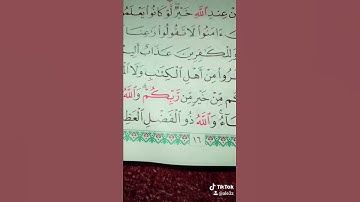 عِندِ ٱللَّهِ خَيْرٌ لَّوْ كَانُوا۟ يَعْلَمُ
ءَامَنُوا۟ لَا تَقُولُوا۟ رَٰعِنَا
وَلِلْكَٰفِرِينَ عَذَابٌ أَلِي
رُوا۟ مِنْ أَهْلِ ٱلْكِتَٰبِ وَلَا ٱلْ
م مِّنْ خَيْرٍ مِّن رَّبِّكُمْ ۗ وَٱللَّهُ
اءُ ۚ وَٱللَّهُ ذُو ٱلْفَضْلِ ٱلْعَظِ
١٦
TikTok